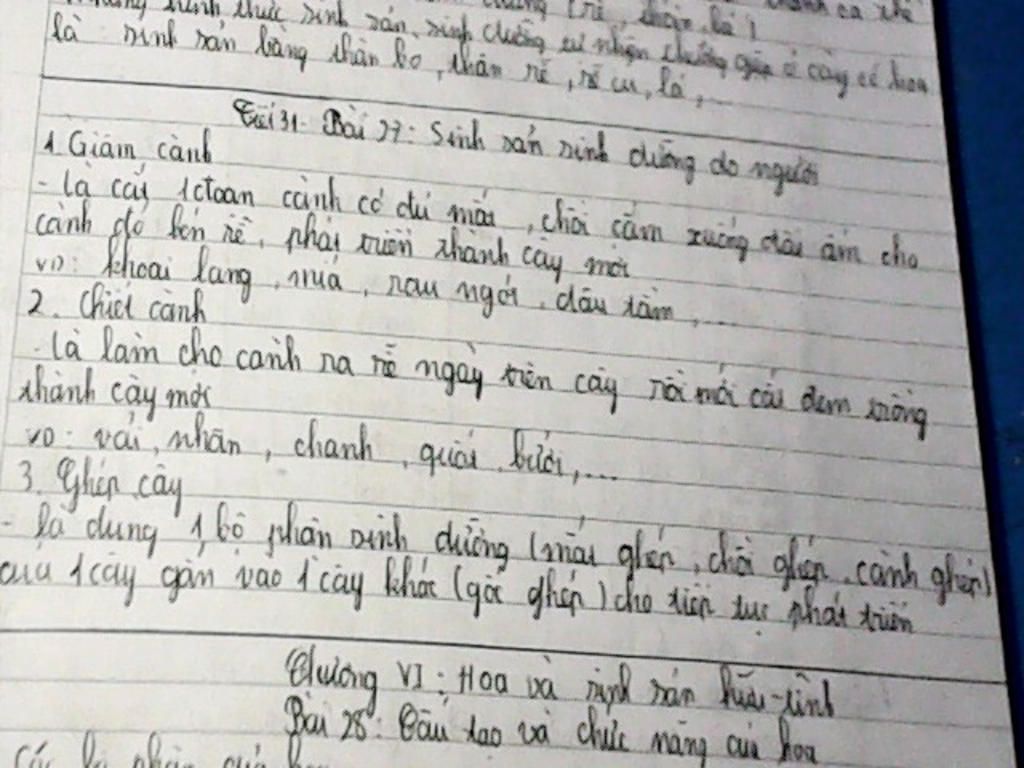 hình thức sinh sản sinh dưỡng tự nhiên thường gặp ở cây có hoa
là: sinh sản bằng thân bò, thân rễ, rễ củ, lá,...
Tiết 31- Bài 27: Sinh sản sinh dưỡng do người
1. Giâm cành
- Là cắt 1 đoạn cành có đủ mắt, chồi cắm xuống đất ẩm cho
cành đó bén rễ, phát triển thành cây mới
VD: khoai lang, mía, rau ngót, dâu tằm,...
2. Chiết cành
- Là làm cho cành ra rễ ngay trên cây rồi mới cắt đem trồng
thành cây mới
VD: vải, nhãn, chanh, quất, bưởi,...
3. Ghép cây
- là dùng 1 bộ phận sinh dưỡng (mắt ghép, chồi ghép, cành ghép)
của 1 cây gắn vào 1 cây khác (gốc ghép) cho tiếp tục phát triển
Chương VI: Hoa và sinh sản hữu tính
Bài 28: Cấu tạo và chức năng của hoa